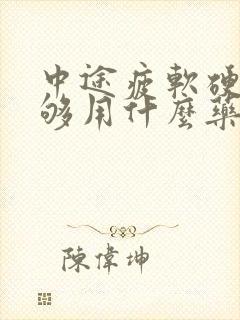 中途疲軟硬
够用什麼藥
陳偉坤